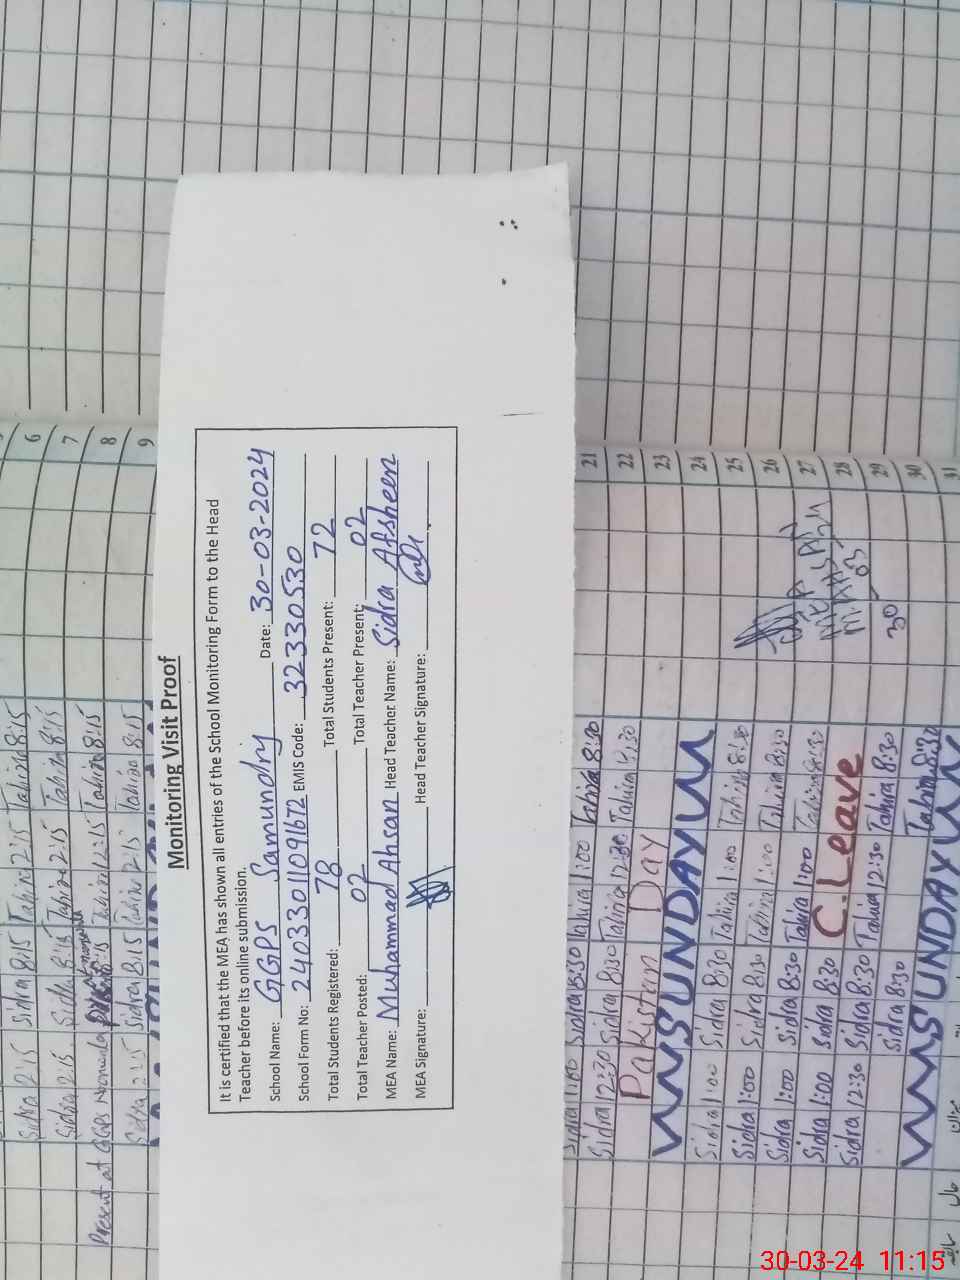 Monitoring Visit Proof
It is certified that the MEA has shown all entries of the School Monitoring Form to the Head
Teacher before its online submission.
School Name: GGPS Samundry Date: 30-03-2024
School Form No: EMIS Code: 32330530
Total Students Registered: 78 Total Students Present: 72
Total Teacher Posted: 02 Total Teacher Present: 02
MEA Name: Muhammad Ahsan Head Teacher Name: Sidra Afsheen
MEA Signature: Head Teacher Signature:
6 Sidra 2:15 Sidra 8:15 Tahira 2:15 Tahira 8:15
7 Sidra 2:15 Sidra 8:15 Tahira 2:15 Tahira 8:15
8 Present at GGPS Tahira 12:15 Tahira 8:15
9 Sidra 2:15 Sidra 8:15 Tahira 2:15 Tahira 8:15
21 Sidra 1:00 Sidra 8:30 Tahira 1:00 Tahira 8:30
22 Sidra 12:30 Sidra 8:30 Tahira 12:30 Tahira 8:30
23 Pakistan Day
24 SUNDAY
25 Sidra 1:00 Sidra 8:30 Tahira 1:00 Tahira 8:30
26 Sidra 1:00 Sidra 8:30 Tahira 1:00 Tahira 8:30
27 Sidra 1:00 Sidra 8:30 Tahira 1:00 Tahira 8:30
28 Sidra 1:00 Sidra 8:30 C.Leave
29 Sidra 12:30 Sidra 8:30 Tahira 12:30 Tahira 8:30
30 Sidra 8:30 Tahira 8:30
31 SUNDAY
30-03-24 11:15